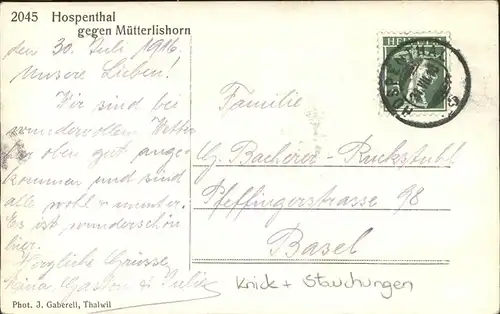 2045 Hospenthal
gegen Mütterlishorn
den 30. Juli 1916.
Unsere Lieben!
Wir sind bei
wundervollem Wetter
hier oben gut ange-
kommen und sind
alle wohl & munter.
Es ist wunderschön
hier.
Herzliche Grüsse
Gaston & Julie
HELVETIA
HOSPENTHAL
Familie
G. Bacherer-Ruckstuhl
Pfeffingerstrasse 98
Basel
Knick + Stauchungen
Phot. J. Gaberell, Thalwil